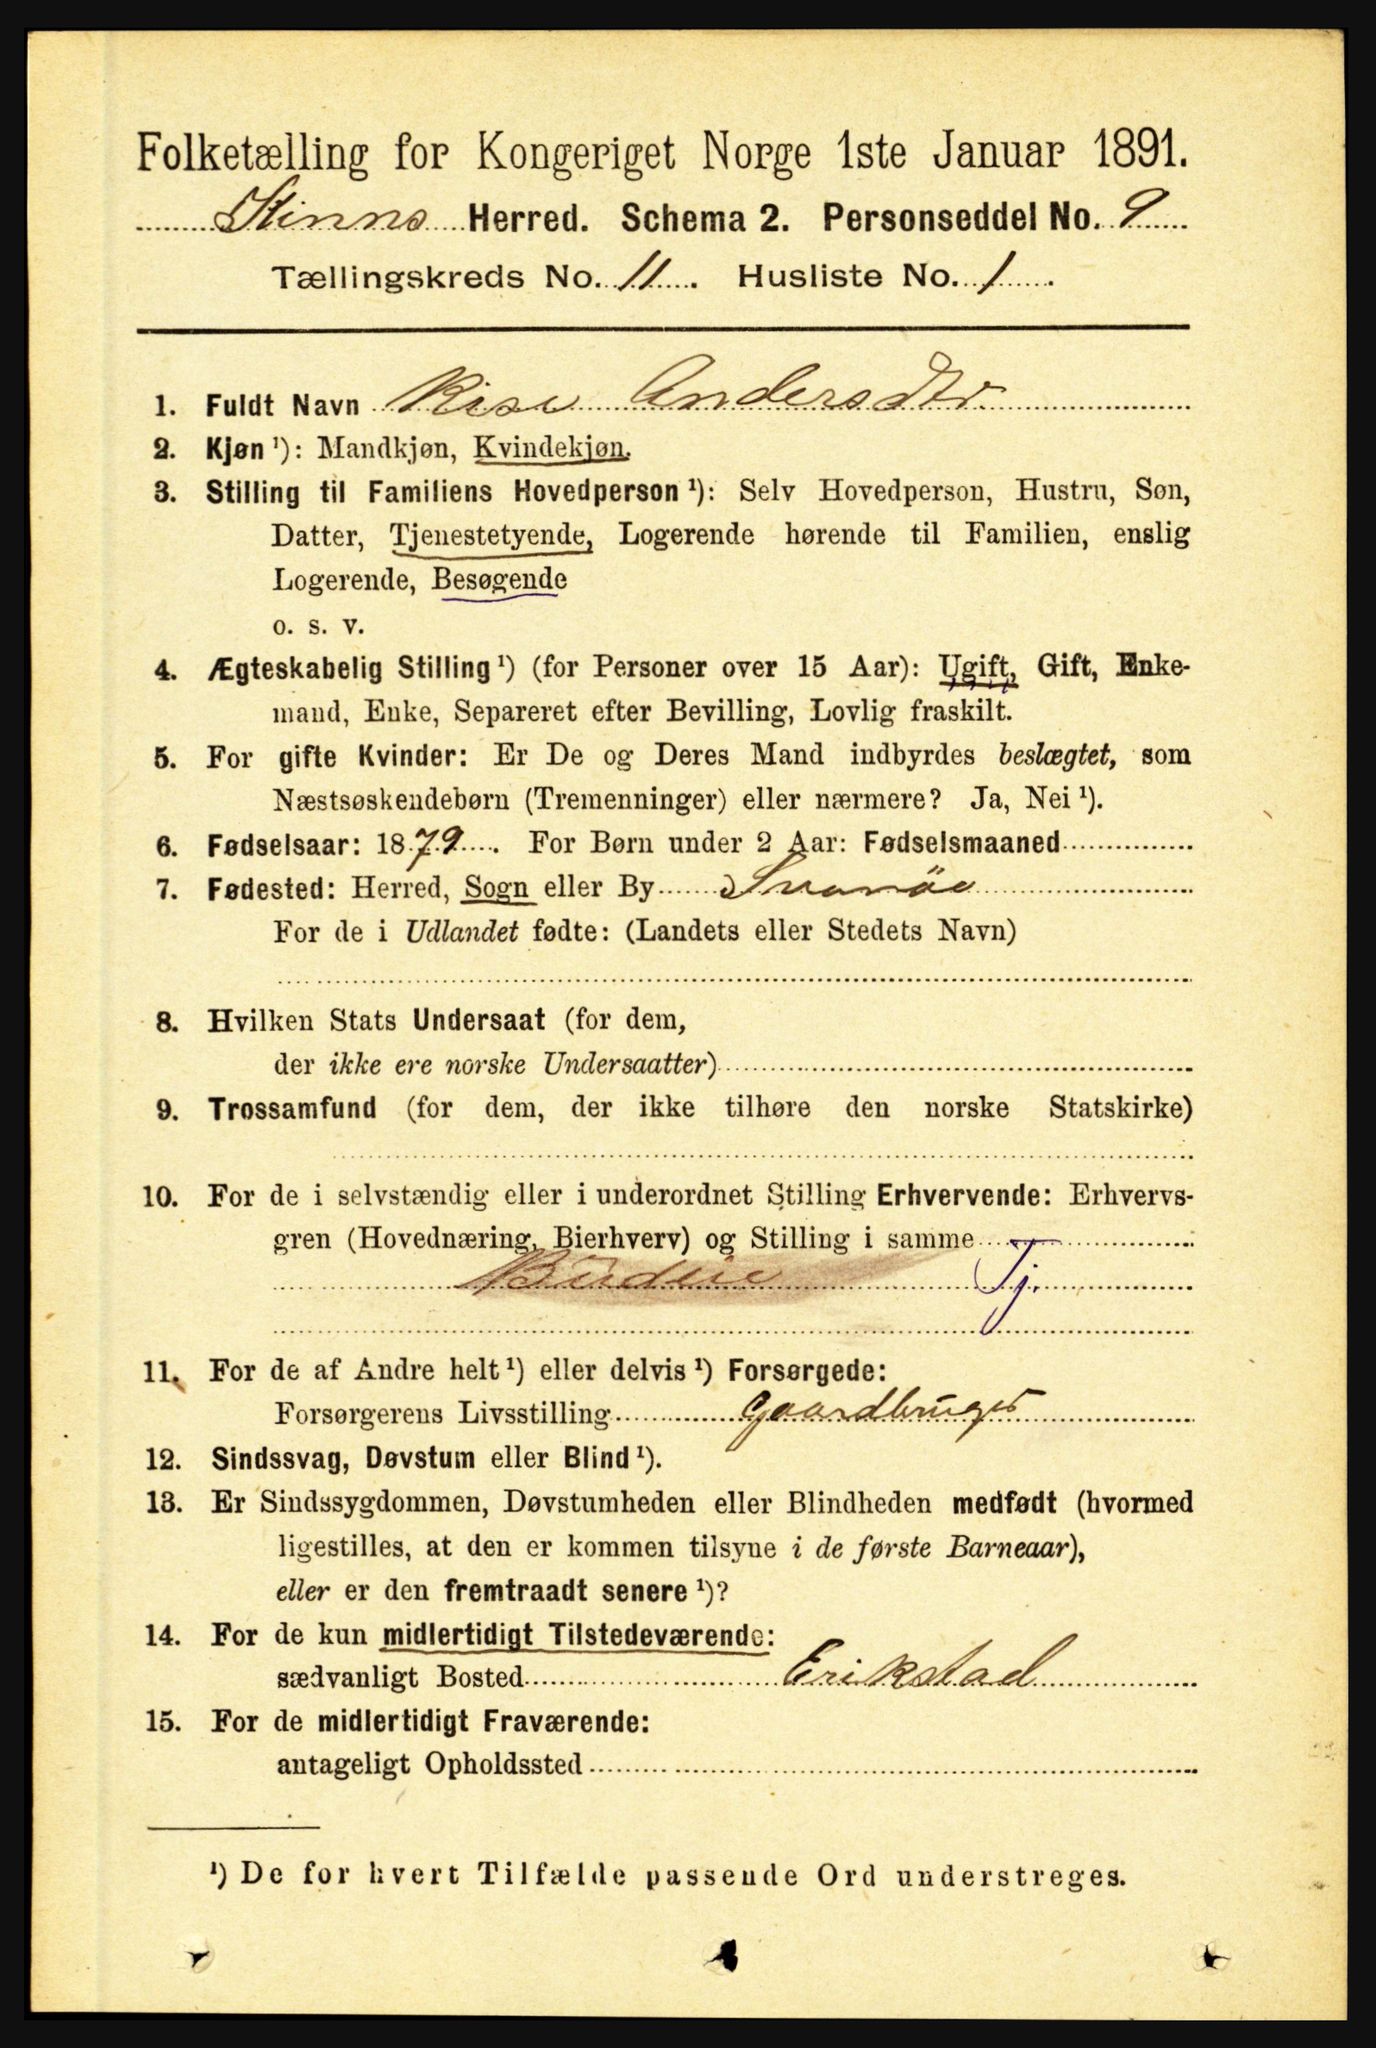 Folketælling for Kongeriget Norge 1ste Januar 1891.
Kinns Herred. Schema 2. Personseddel No. 9
Tællingskreds No. 11. Husliste No. 1.
1. Fuldt Navn Andersdtr
2. Kjøn ¹): Mandkjøn, Kvindekjøn.
3. Stilling til Familiens Hovedperson ¹): Selv Hovedperson, Hustru, Søn,
Datter, Tjenestetyende, Logerende hørende til Familien, enslig
Logerende, Besøgende
o. s. v.
4. Ægteskabelig Stilling ¹) (for Personer over 15 Aar): Ugift, Gift, Enke-
mand, Enke, Separeret efter Bevilling, Lovlig fraskilt.
5. For gifte Kvinder: Er De og Deres Mand indbyrdes beslægtet, som
Næstsøskendebørn (Tremenninger) eller nærmere? Ja, Nei ¹).
6. Fødselsaar: 1879. For Børn under 2 Aar: Fødselsmaaned
7. Fødested: Herred, Sogn eller By Svanöe
For de i Udlandet fødte: (Landets eller Stedets Navn)
8. Hvilken Stats Undersaat (for dem,
der ikke ere norske Undersaatter)
9. Trossamfund (for dem, der ikke tilhøre den norske Statskirke)
10. For de i selvstændig eller i underordnet Stilling Erhvervende: Erhvervs-
gren (Hovednæring, Bierhverv) og Stilling i samme
Budeie Tj.
11. For de af Andre helt ¹) eller delvis ¹) Forsørgede:
Forsørgerens Livsstilling Gaardbruger
12. Sindssvag, Døvstum eller Blind ¹).
13. Er Sindssygdommen, Døvstumheden eller Blindheden medfødt (hvormed
ligestilles, at den er kommen tilsyne i de første Barneaar),
eller er den fremtraadt senere ¹)?
14. For de kun midlertidigt Tilstedeværende:
sædvanligt Bosted Erikstad
15. For de midlertidigt Fraværende:
antageligt Opholdssted
¹) De for hvert Tilfælde passende Ord understreges.